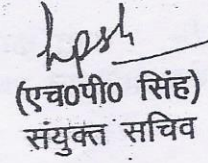 (एच0पी0 सिंह)
संयुक्त सचिव